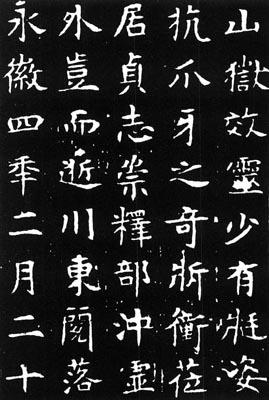 山嶽效靈少有凝姿
抗爪牙之奇斨衝莅
居貞志崇釋部沖靈
外豈而逝川東閱落
永徽四年二月二十